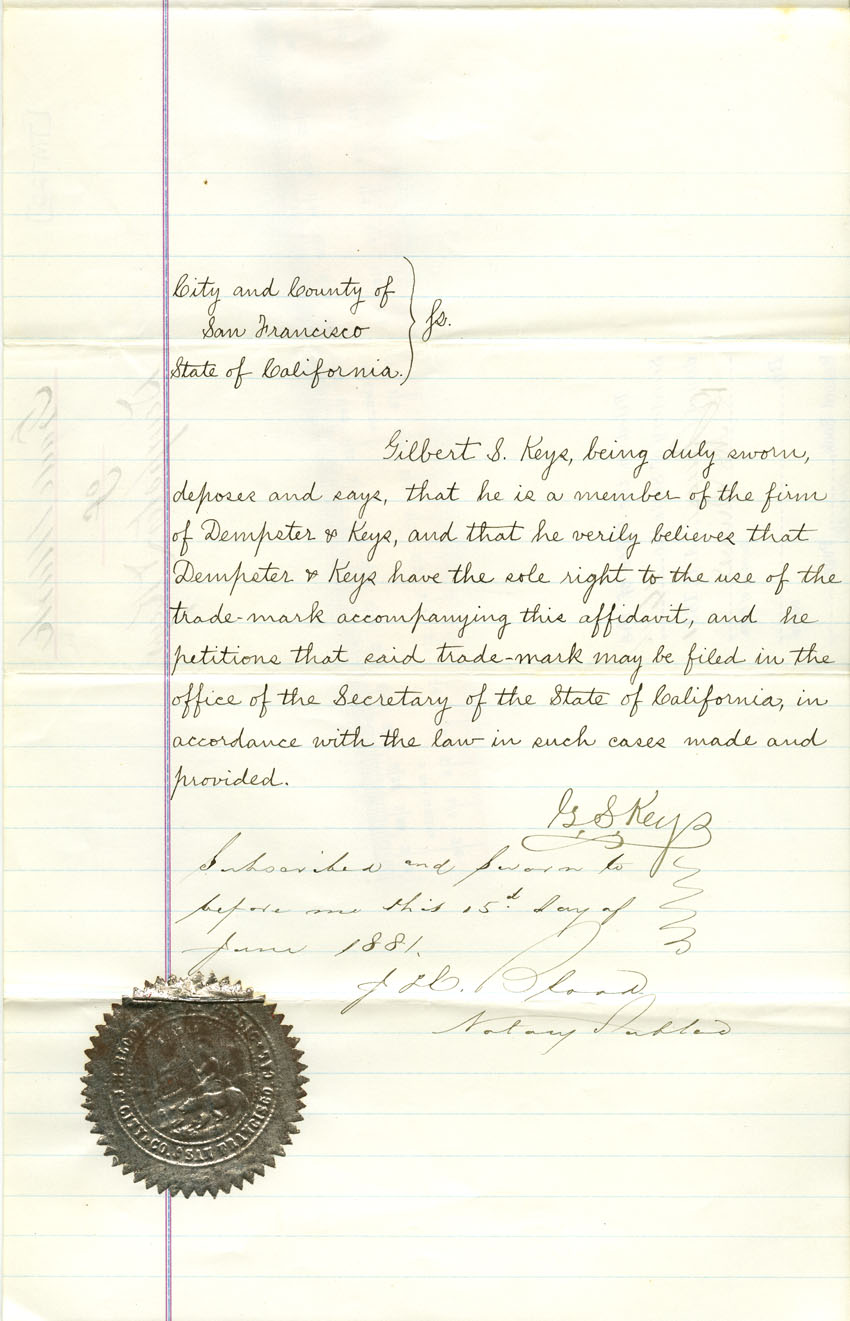 City and County of
San Francisco
State of California. } ss.
Gilbert S. Keys, being duly sworn,
deposes and says, that he is a member of the firm
of Dempster & Keys, and that he verily believes that
Dempster & Keys have the sole right to the use of the
trade-mark accompanying this affidavit, and he
petitions that said trade-mark may be filed in the
office of the Secretary of the State of California, in
accordance with the law in such cases made and
provided.
G. S. Keys
Subscribed and Sworn to
before me this 15th day of
June 1881.
J. H. Blood
Notary Public
CITY & CO. SAN FRANCISCO CAL.